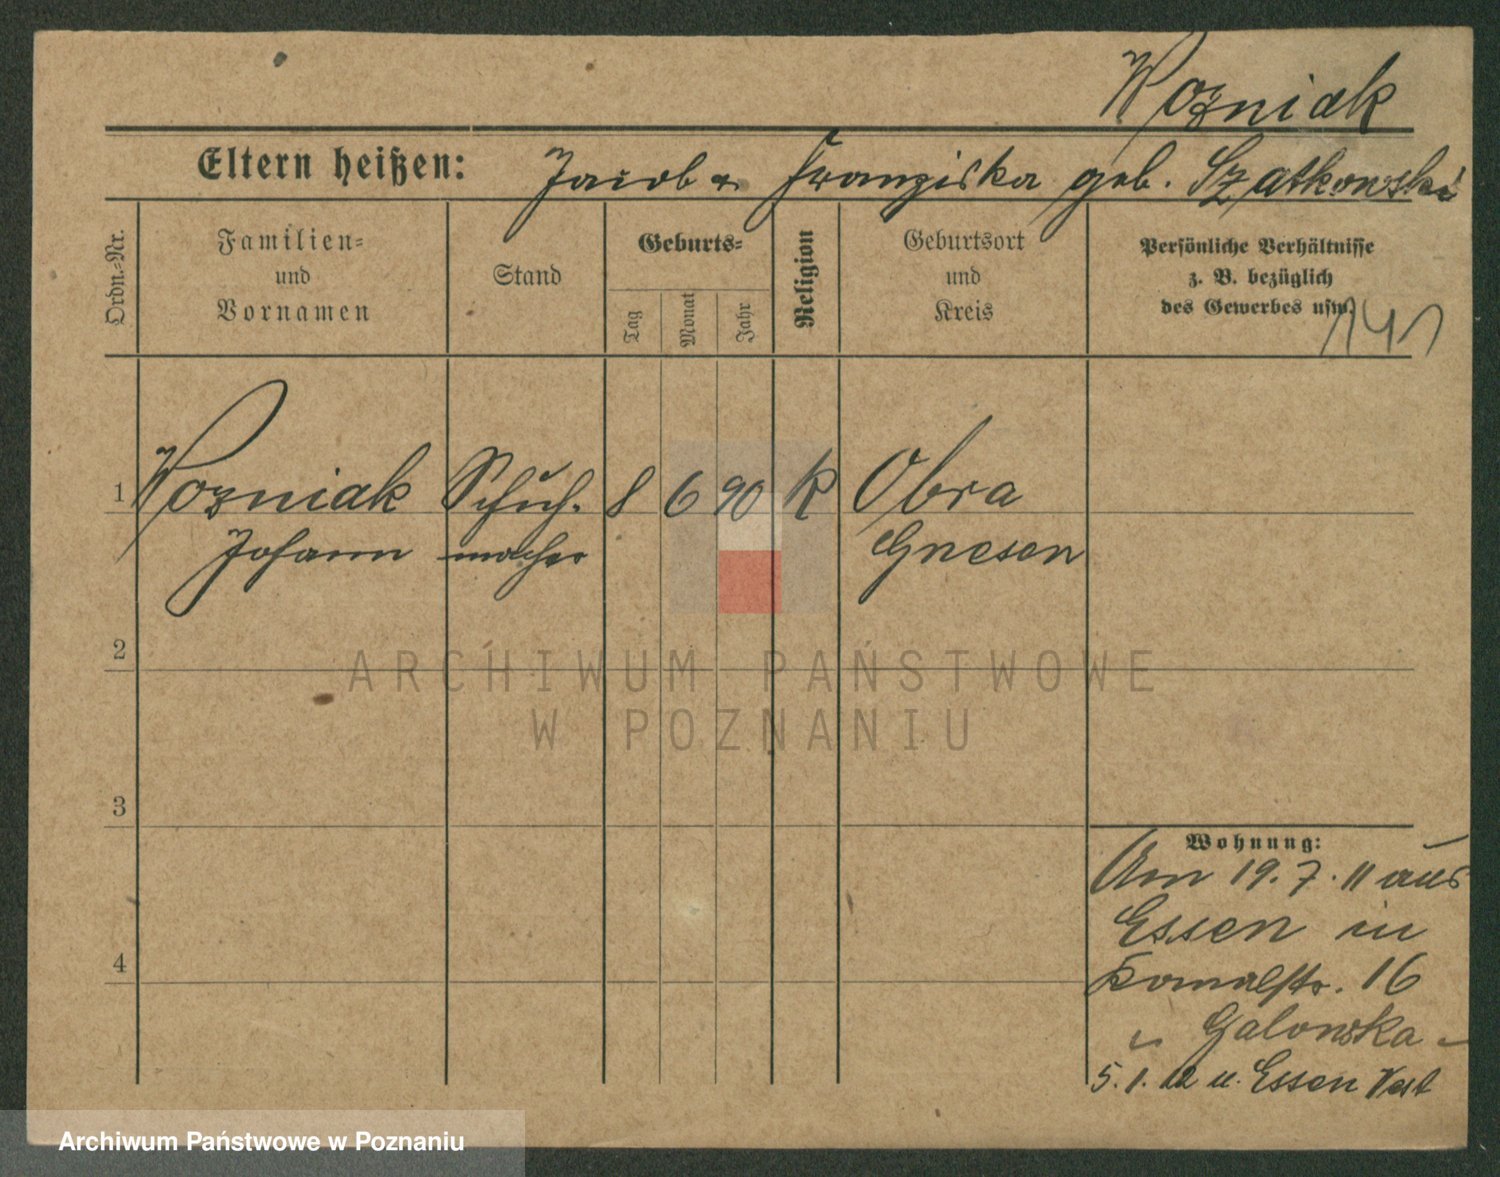 Wozniak
Eltern heißen: Jacob u. Franziska geb. Szatkowski
Ordn.=Nr.
Familien=
und
Vornamen
Stand
Geburts=
Tag
Monat
Jahr
Religion
Geburtsort
und
Kreis
Persönliche Verhältnisse
z. B. bezüglich
des Gewerbes usw.
141
1 Wozniak Schuh- 8 6 90 K Obra
Johann macher Gnesen
2
ARCHIWUM PAŃSTWOWE
W POZNANIU
3
Wohnung:
Am 19.7.11 aus
Essen in
16
Galowska
5.1.12 n. Essen
4
Archiwum Państwowe w Poznaniu